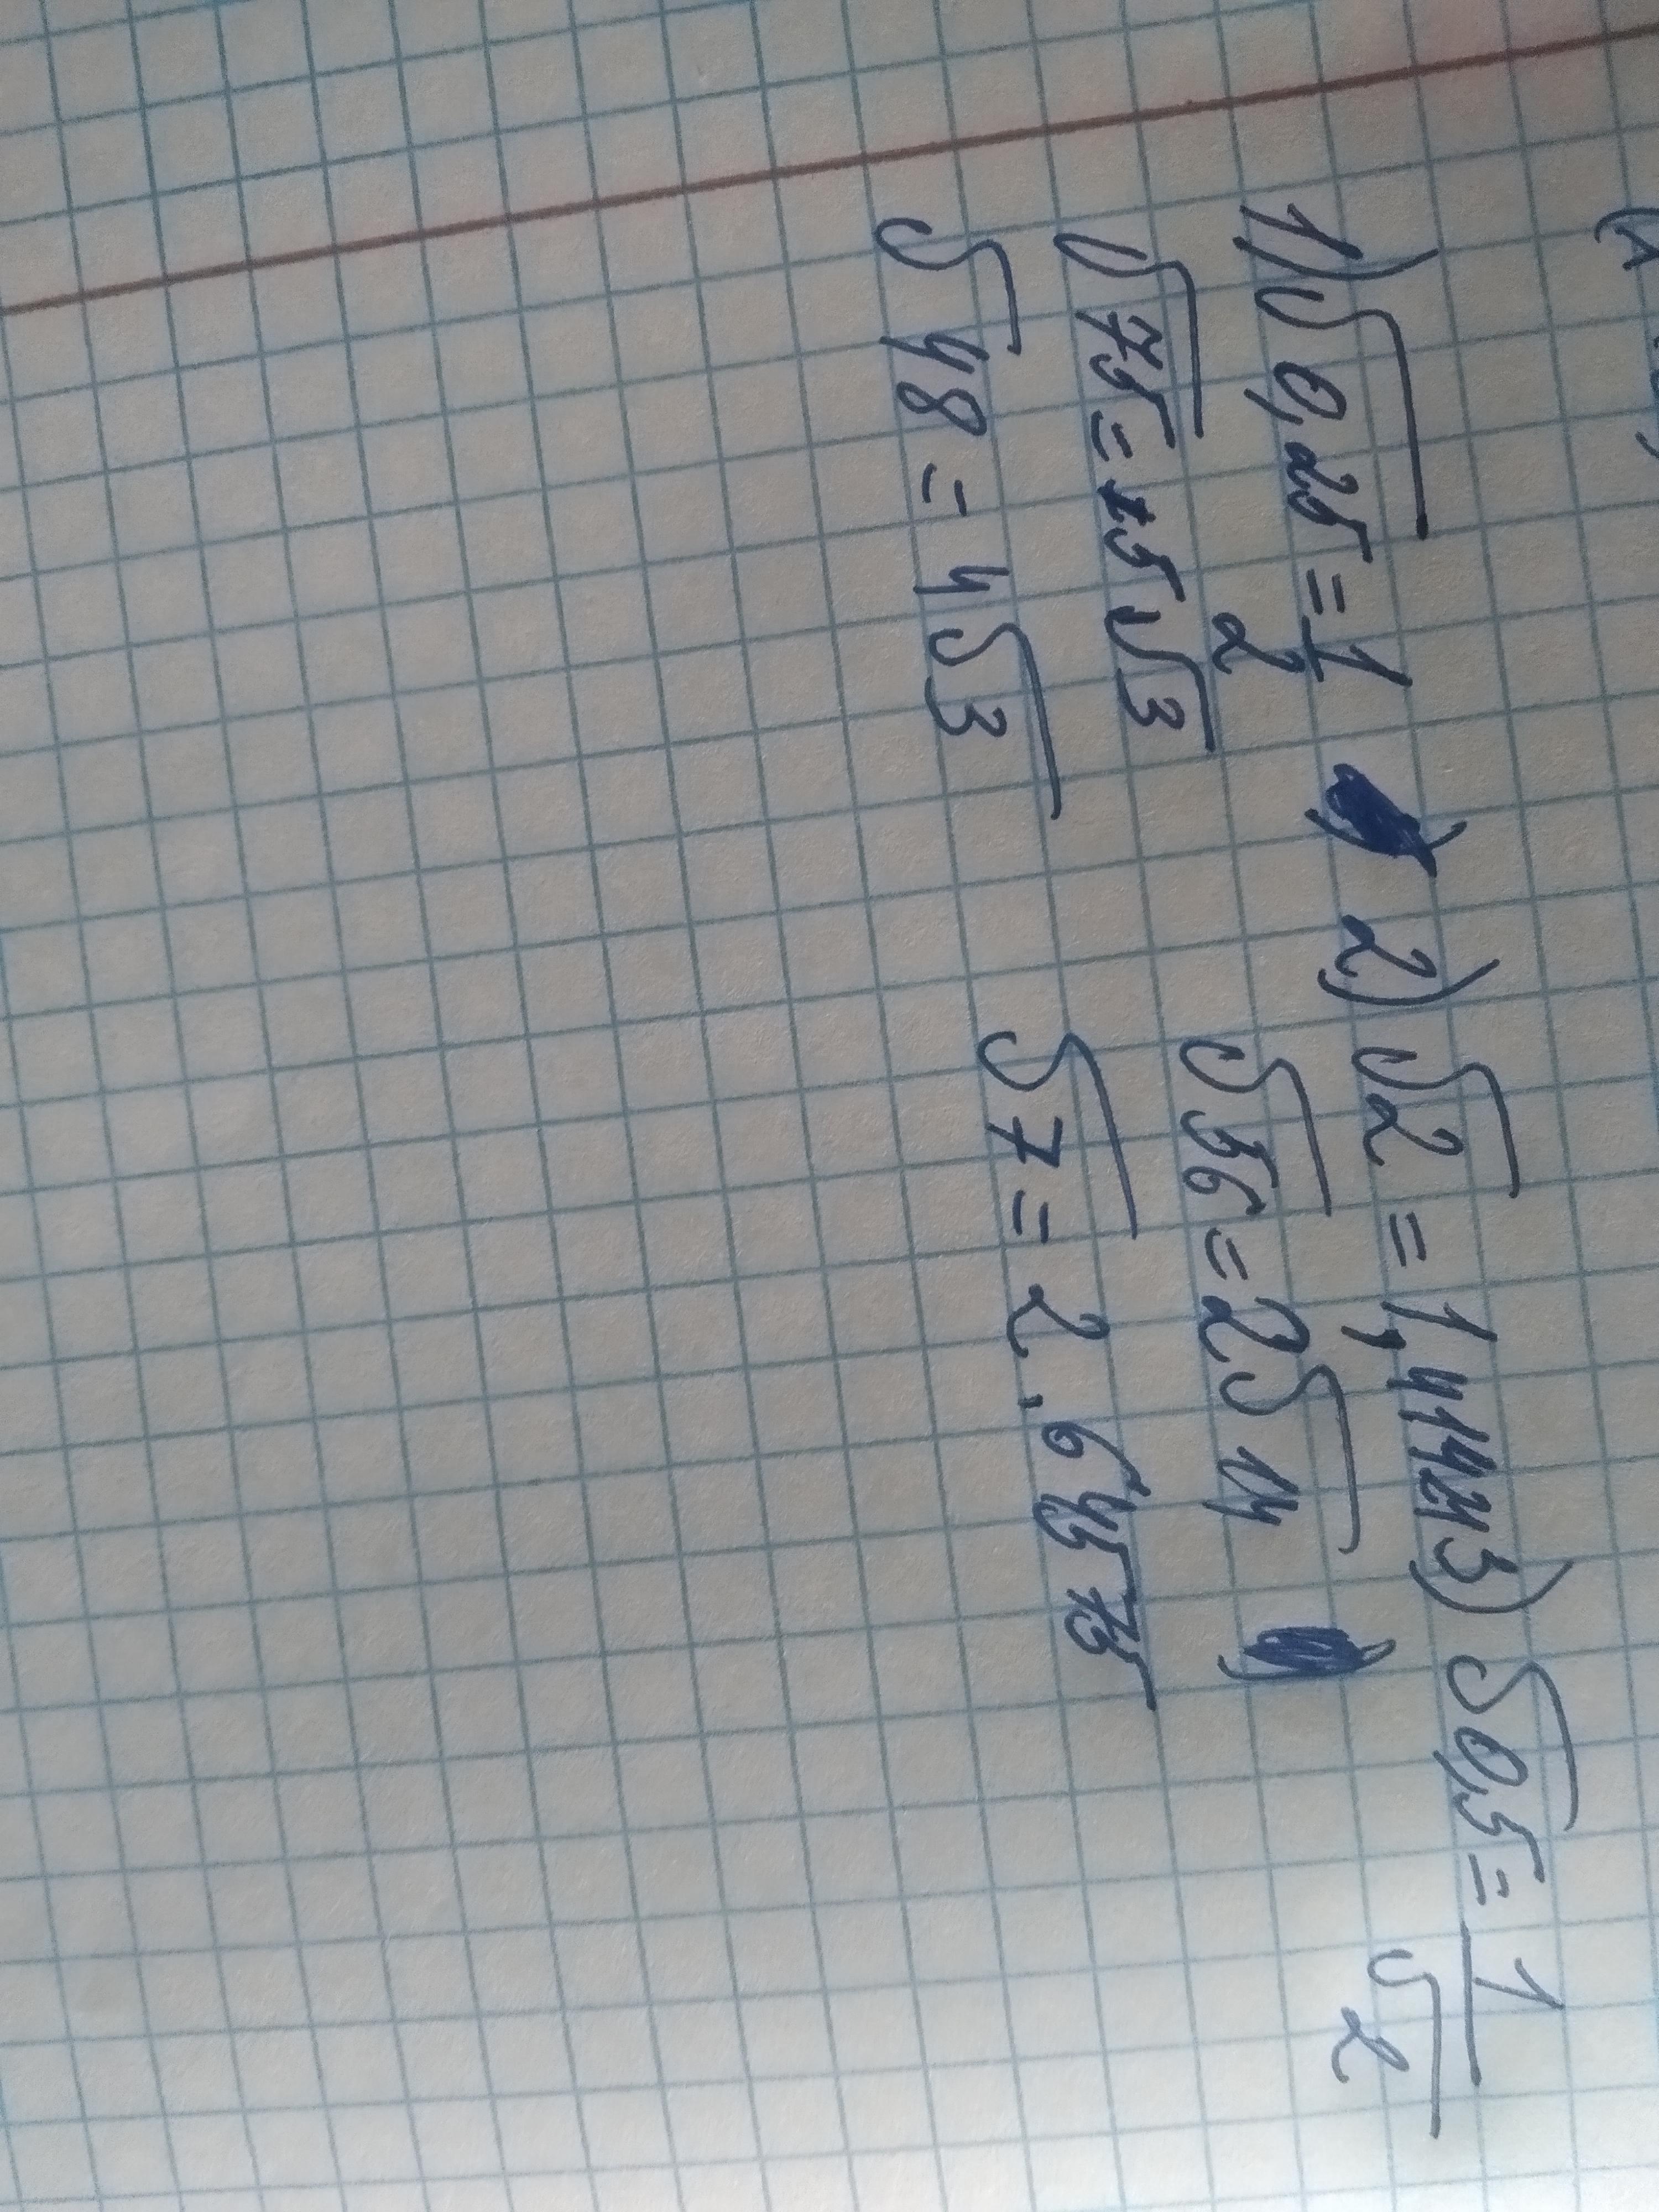 1) √0,25 = 1/2 2) √2 = 1,4142 3) √0,5 = 1/√2
√75 = 5√3 √56 = 2√14
√48 = 4√3 √7 = 2.64575